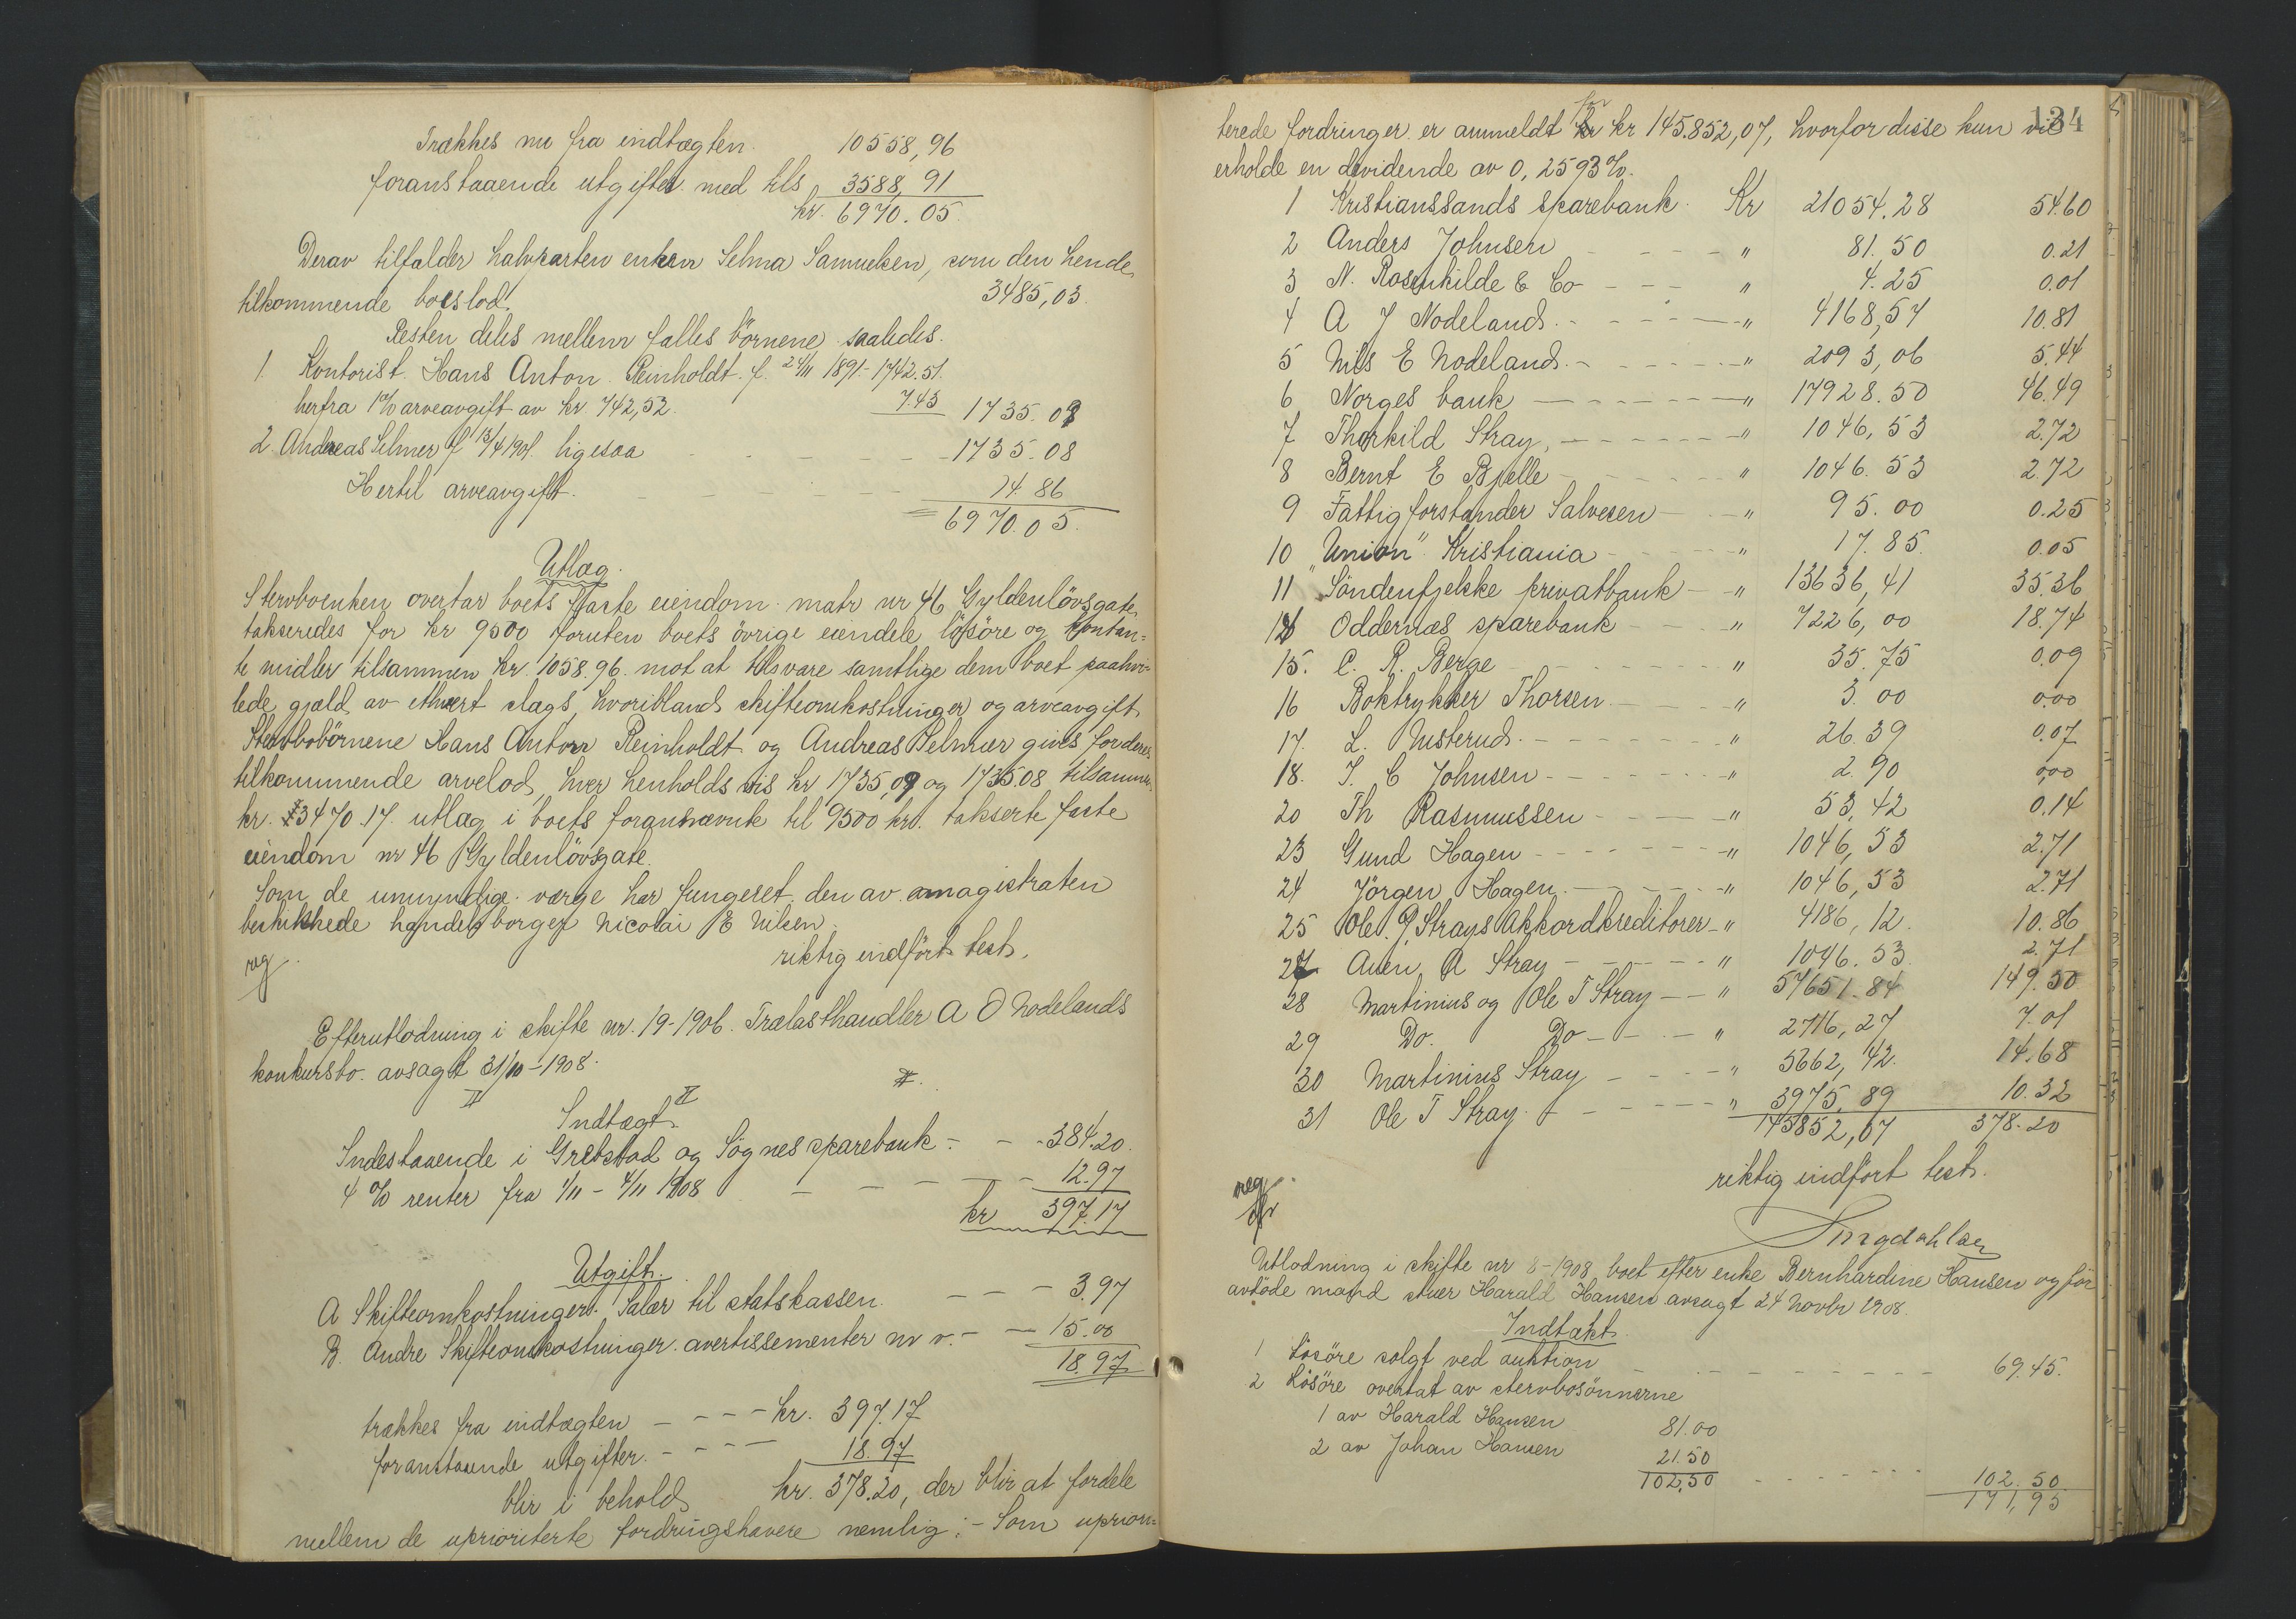 Trækkes nu fra indtægten 10558,96
foranstaaende utgifter med tils 3588,91
kr. 6970.05.
Derav tilfalder halvparten enken Selma Samuelsen, som den hende
tilkommende boeslod. 3485,03.
Resten deles mellem fælles börnene saaledes.
1. Kontorist Hans Anton Reinholdt f. 24/11 1891 - 1742.51.
herfra 1% arveavgift av kr. 742,52. 7.43 1735.09
2. Andreas Selmer f 13/4 1901. ligesaa - - - - - 1735.08
Hertil arveavgift. - - - - - 14.86
6970.05.
Utlæg.
Stervboenken overtar boets faste eiendom matr nr 46 Gyldenlövsgate
takseredes for kr 9500 foruten boets övrige eiendele lösöre og kontan-
te midler tilsammen kr. 1058.96. mot at tilsvare samtlige dem boet paahvi-
lede gjæld av ethvert slags, hvoriblandt skifteomkostninger og arveavgift
Stervbobörnene Hans Anton Reinholdt og Andreas Selmer gives for deres
tilkommende arvelod, hver henholdsvis kr 1735,09 og 1735.08 tilsammen
kr. 3470.17. utlæg i boets forannævnte til 9500 kr. takserte faste
eiendom nr 46 Gyldenlövsgate.
Som de umyndige værge har fungeret den av magistraten
beskikkede handelsborger Nicolai E Nilsen.
riktig indfört test.
reg
Efterutlodning i skifte nr. 19-1906. Trælasthandler A O Nodelands
konkursbo. avsagt 31/10-1908.
Indtægt
Indestaaende i Greipstad og Sögnes sparebank - - - 384.20.
4 % renter fra 1/11 - 4/11 1908 - - - - - 12.97
kr 397.17
Utgift.
A Skifteomkostninger. Salær til statskassen. - - - 3.97
B. Andre Skifteomkostninger. avertissementer m v. - - 15.00
18.97
trækkes fra indtægten - - - - kr. 397.17
foranstaaende utgifter. - - - - 18.97
blir i behold kr. 378.20, der blir at fordele
mellem de uprioriterte fordringshavere nemlig: - Som uprior-
134
terede fordringer er anmeldt for kr 145.852,07, hvorfor disse kun vil
erholde en dividende av 0,2593%.
1 Kristianssands sparebank. Kr 21054.28 54.60
2 Anders Johnsen - - - - " 81.50 0.21
3 N. Rosenkilde & Co - - - " 4.25 0.01
4 A J Nodeland. - - - - - " 4168,54 10.81
5 Nils E Nodeland. - - - - - " 2093,06 5.44
6 Norges bank - - - - - - " 17928.50 46.49
7 Thorkild Stray, - - - - - - " 1046,53 2.72
8 Bernt E Bjelle - - - - - " 1046.53 2.72
9 Fattigforstander Salvesen - - " 95.00 0.25
10 "Union" Kristiania - - - - - " 17.85. 0.05
11 Söndenfjelske privatbank - - " 13636,41 35.36
14 Oddernæs sparebank - - - - " 7226,00 18.74
15. C. R. Berge - - - - - - " 35.75 0.09
16 Boktrykker Thorsen. - - - - " 3.00 0.00
17. L. Musterud. - - - - - - - " 26.39 0.07
18. J. C Johnsen - - - - - - - " 2.90 0,00
20 Th Rasmussen - - - - - " 53,42 0.14
23 Gund Hagen - - - - - - - " 1046,53 2.71
24 Jörgen Hagen. - - - - - " 1046,53 2.71
25 Ole P. Strays Akkordkreditorer - " 4186,12. 10.86
27 Auen A Stray - - - - - " 1046.53. 2.71
28 Martinius og Ole T Stray - - " 57651.84 149.50
29 Do. Do - - - - " 2716,27 7.01
30 Martinius Stray - - - - " 5662,42. 14.68
31 Ole T Stray. - - - - - - " 3975.89 10.32
145852,07 378.20
riktig indfört test.
reg
Utlodning i skifte nr 8-1908 boet efter enke Bernhardine Hansen og för
avdöde mand Harald Hansen avsagt 24 Novbr 1908.
Indtækt.
1 Lösöre solgt ved auktion - - - - - - - - - 69.45.
2 Lösöre overtat av stervbosönnerne
1 av Harald Hansen 81.00
2 av Johan Hansen 21.50
102,50 - - - - - - - 102.50
171,95